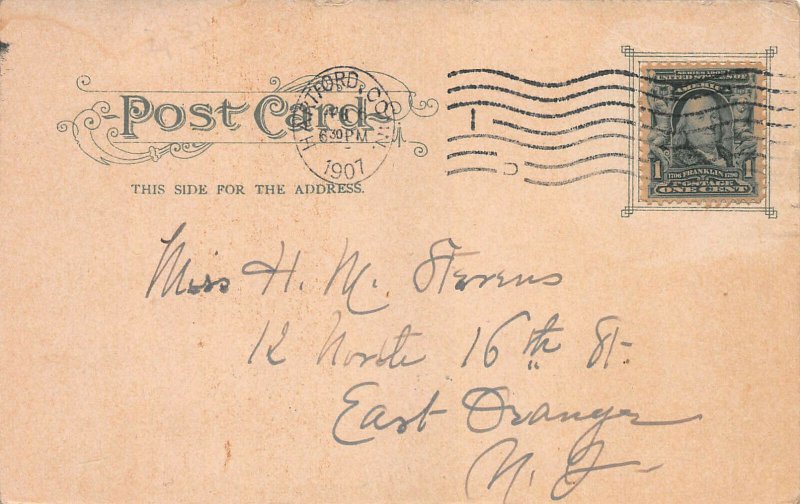 POST CARD
THIS SIDE FOR THE ADDRESS.
HARTFORD, CONN.
630 PM
1907
SERIES 1902
UNITED STATES OF AMERICA
1 1706 FRANKLIN 1790 1
POSTAGE
ONE CENT
Miss H. M. Stevens
12 North 16th St.
East Orange
N. J.